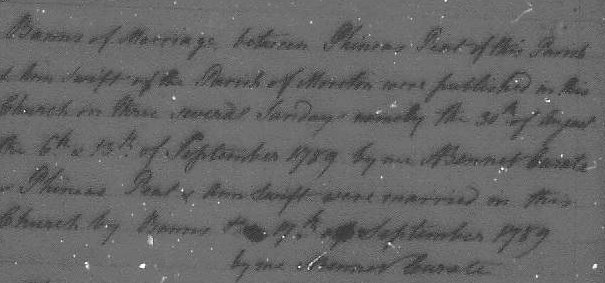 Banns of Marriage, between Phineas Pent of this Parish
& Ann Swift of the Parish of Moreton were published in this
Church on three several Sundays namely the 30th of August
the 6th & 13th of September 1789 by me Bennet Curate
Phineas Pent & Ann Swift were married in this
Church by Banns the of September 1789
by me Bennet Curate